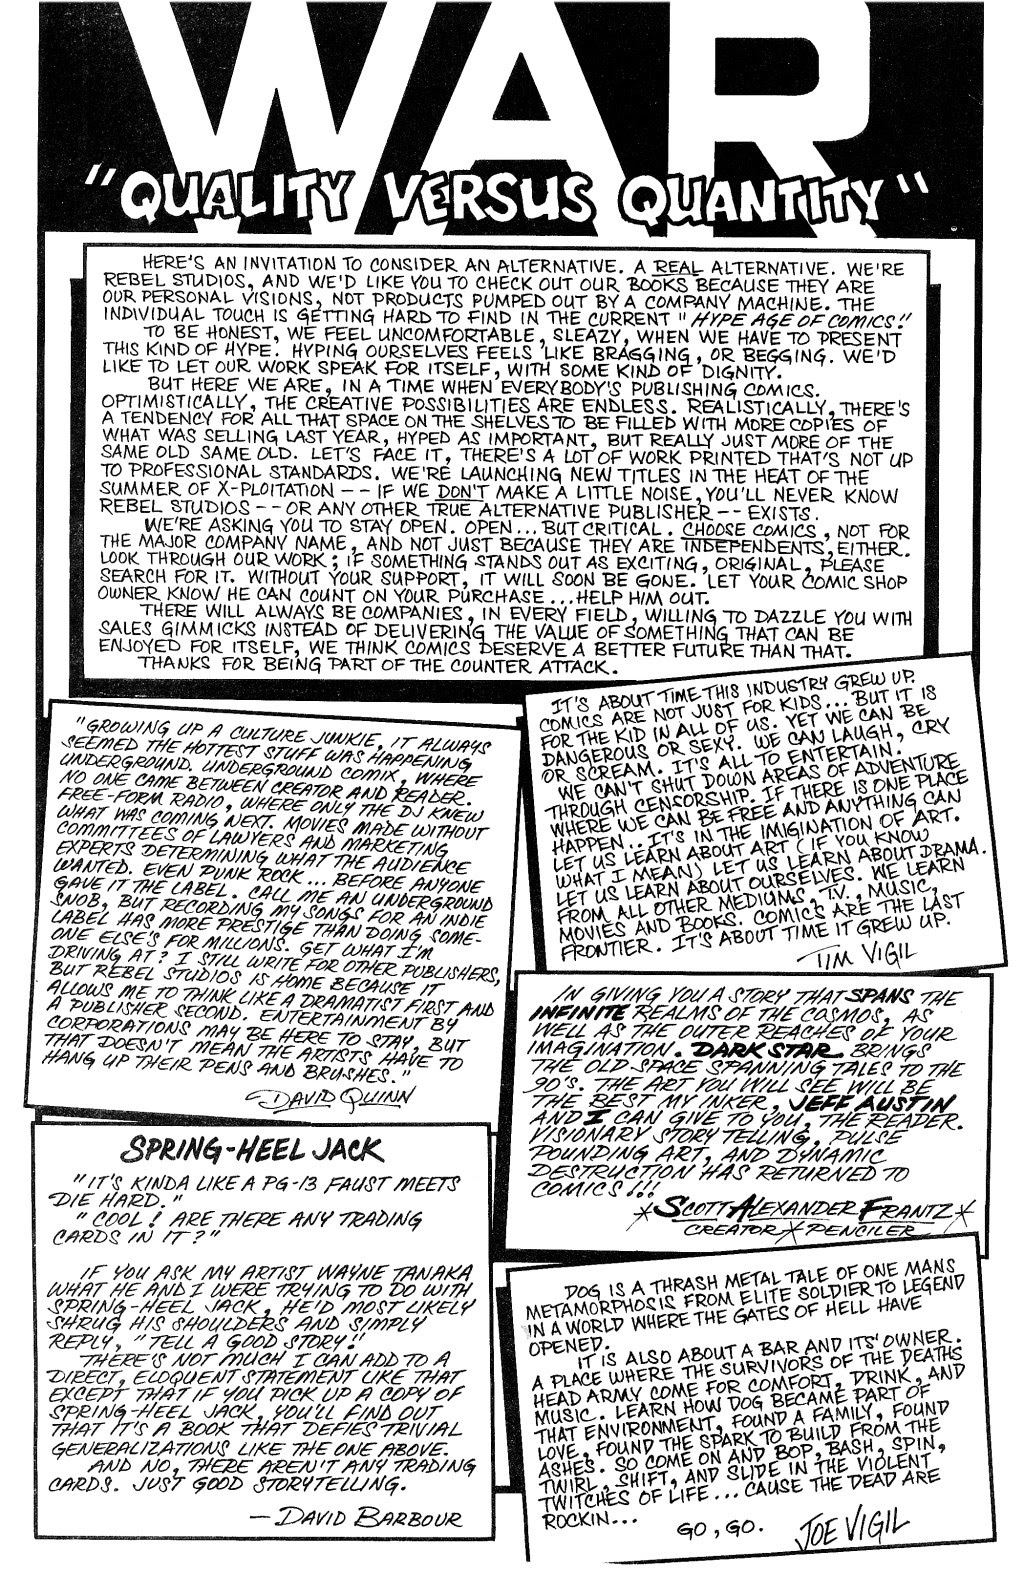 WAR
"QUALITY VERSUS QUANTITY"
HERE'S AN INVITATION TO CONSIDER AN ALTERNATIVE. A REAL ALTERNATIVE. WE'RE
REBEL STUDIOS, AND WE'D LIKE YOU TO CHECK OUT OUR BOOKS BECAUSE THEY ARE
OUR PERSONAL VISIONS, NOT PRODUCTS PUMPED OUT BY A COMPANY MACHINE. THE
INDIVIDUAL TOUCH IS GETTING HARD TO FIND IN THE CURRENT "HYPE AGE OF COMICS!"
TO BE HONEST, WE FEEL UNCOMFORTABLE, SLEAZY, WHEN WE HAVE TO PRESENT
THIS KIND OF HYPE. HYPING OURSELVES FEELS LIKE BRAGGING, OR BEGGING. WE'D
LIKE TO LET OUR WORK SPEAK FOR ITSELF, WITH SOME KIND OF DIGNITY.
BUT HERE WE ARE, IN A TIME WHEN EVERYBODY'S PUBLISHING COMICS.
OPTIMISTICALLY, THE CREATIVE POSSIBILITIES ARE ENDLESS. REALISTICALLY, THERE'S
A TENDENCY FOR ALL THAT SPACE ON THE SHELVES TO BE FILLED WITH MORE COPIES OF
WHAT WAS SELLING LAST YEAR, HYPED AS IMPORTANT, BUT REALLY JUST MORE OF THE
SAME OLD SAME OLD. LET'S FACE IT, THERE'S A LOT OF WORK PRINTED THAT'S NOT UP
TO PROFESSIONAL STANDARDS. WE'RE LAUNCHING NEW TITLES IN THE HEAT OF THE
SUMMER OF X-PLOITATION -- IF WE DON'T MAKE A LITTLE NOISE, YOU'LL NEVER KNOW
REBEL STUDIOS -- OR ANY OTHER TRUE ALTERNATIVE PUBLISHER -- EXISTS.
WE'RE ASKING YOU TO STAY OPEN. OPEN... BUT CRITICAL. CHOOSE COMICS, NOT FOR
THE MAJOR COMPANY NAME, AND NOT JUST BECAUSE THEY ARE INDEPENDENTS, EITHER.
LOOK THROUGH OUR WORK; IF SOMETHING STANDS OUT AS EXCITING, ORIGINAL, PLEASE
SEARCH FOR IT. WITHOUT YOUR SUPPORT, IT WILL SOON BE GONE. LET YOUR COMIC SHOP
OWNER KNOW HE CAN COUNT ON YOUR PURCHASE...HELP HIM OUT.
THERE WILL ALWAYS BE COMPANIES, IN EVERY FIELD, WILLING TO DAZZLE YOU WITH
SALES GIMMICKS INSTEAD OF DELIVERING THE VALUE OF SOMETHING THAT CAN BE
ENJOYED FOR ITSELF, WE THINK COMICS DESERVE A BETTER FUTURE THAN THAT.
THANKS FOR BEING PART OF THE COUNTER ATTACK.
"GROWING UP A CULTURE JUNKIE, IT ALWAYS
SEEMED THE HOTTEST STUFF WAS HAPPENING
UNDERGROUND. UNDERGROUND COMIX, WHERE
NO ONE CAME BETWEEN CREATOR AND READER.
FREE-FORM RADIO, WHERE ONLY THE DJ KNEW
WHAT WAS COMING NEXT. MOVIES MADE WITHOUT
COMMITTEES OF LAWYERS AND MARKETING
EXPERTS DETERMINING WHAT THE AUDIENCE
WANTED. EVEN PUNK ROCK... BEFORE ANYONE
GAVE IT THE LABEL. CALL ME AN UNDERGROUND
SNOB, BUT RECORDING MY SONGS FOR AN INDIE
LABEL HAS MORE PRESTIGE THAN DOING SOME-
ONE ELSE'S FOR MILLIONS. GET WHAT I'M
DRIVING AT? I STILL WRITE FOR OTHER PUBLISHERS,
BUT REBEL STUDIOS IS HOME BECAUSE IT
ALLOWS ME TO THINK LIKE A DRAMATIST FIRST AND
A PUBLISHER SECOND. ENTERTAINMENT BY
CORPORATIONS MAY BE HERE TO STAY, BUT
THAT DOESN'T MEAN THE ARTISTS HAVE TO
HANG UP THEIR PENS AND BRUSHES."
DAVID QUINN
IT'S ABOUT TIME THIS INDUSTRY GREW UP.
COMICS ARE NOT JUST FOR KIDS... BUT IT IS
FOR THE KID IN ALL OF US. YET WE CAN BE
DANGEROUS OR SEXY. WE CAN LAUGH, CRY
OR SCREAM. IT'S ALL TO ENTERTAIN.
WE CAN'T SHUT DOWN AREAS OF ADVENTURE
THROUGH CENSORSHIP. IF THERE IS ONE PLACE
WHERE WE CAN BE FREE AND ANYTHING CAN
HAPPEN.. IT'S IN THE IMIGINATION OF ART.
LET US LEARN ABOUT ART (IF YOU KNOW
WHAT I MEAN) LET US LEARN ABOUT DRAMA.
LET US LEARN ABOUT OURSELVES. WE LEARN
FROM ALL OTHER MEDIUMS, T.V., MUSIC,
MOVIES AND BOOKS. COMICS ARE THE LAST
FRONTIER. IT'S ABOUT TIME IT GREW UP.
TIM VIGIL
IN GIVING YOU A STORY THAT SPANS THE
INFINITE REALMS OF THE COSMOS, AS
WELL AS THE OUTER REACHES OF YOUR
IMAGINATION. DARK STAR BRINGS
THE OLD SPACE SPANNING TALES TO THE
90'S. THE ART YOU WILL SEE WILL BE
THE BEST MY INKER, JEFF AUSTIN
AND I CAN GIVE TO YOU, THE READER.
VISIONARY STORY TELLING, PULSE
POUNDING ART, AND DYNAMIC
DESTRUCTION HAS RETURNED TO
COMICS!!!
*SCOTT ALEXANDER FRANTZ*
CREATOR*PENCILER
SPRING-HEEL JACK
"IT'S KINDA LIKE A PG-13 FAUST MEETS
DIE HARD."
"COOL! ARE THERE ANY TRADING
CARDS IN IT?"
IF YOU ASK MY ARTIST WAYNE TANAKA
WHAT HE AND I WERE TRYING TO DO WITH
SPRING-HEEL JACK, HE'D MOST LIKELY
SHRUG HIS SHOULDERS AND SIMPLY
REPLY, "TELL A GOOD STORY!"
THERE'S NOT MUCH I CAN ADD TO A
DIRECT, ELOQUENT STATEMENT LIKE THAT
EXCEPT THAT IF YOU PICK UP A COPY OF
SPRING-HEEL JACK, YOU'LL FIND OUT
THAT IT'S A BOOK THAT DEFIES TRIVIAL
GENERALIZATIONS LIKE THE ONE ABOVE.
AND NO, THERE AREN'T ANY TRADING
CARDS. JUST GOOD STORYTELLING.
— DAVID BARBOUR
DOG IS A THRASH METAL TALE OF ONE MANS
METAMORPHOSIS FROM ELITE SOLDIER TO LEGEND
IN A WORLD WHERE THE GATES OF HELL HAVE
OPENED.
IT IS ALSO ABOUT A BAR AND ITS' OWNER.
A PLACE WHERE THE SURVIVORS OF THE DEATHS
HEAD ARMY COME FOR COMFORT, DRINK, AND
MUSIC. LEARN HOW DOG BECAME PART OF
THAT ENVIRONMENT, FOUND A FAMILY, FOUND
LOVE, FOUND THE SPARK TO BUILD FROM THE
ASHES. SO COME ON AND BOP, BASH, SPIN,
TWIRL, SHIFT, AND SLIDE IN THE VIOLENT
TWITCHES OF LIFE... CAUSE THE DEAD ARE
ROCKIN...
GO, GO.
JOE VIGIL